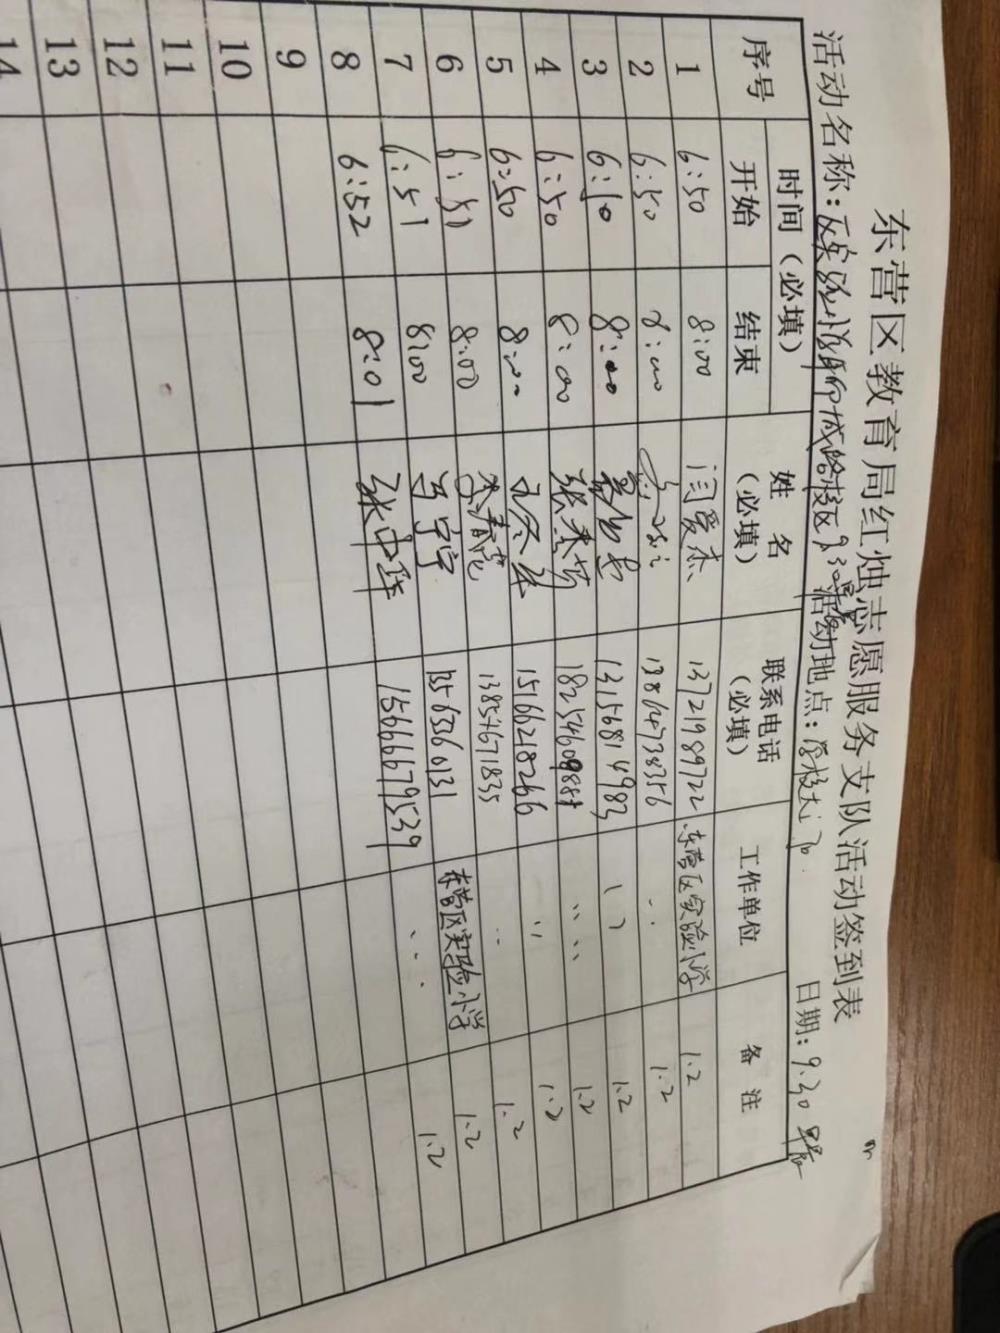 东营区教育局红烛志愿服务支队活动签到表
活动名称：区实验小学聊城路校区9.30 活动地点：学校大门 日期：9.30
序号 时间（必填） 姓名（必填） 联系电话（必填） 工作单位 备注
开始 结束
1 6:50 8:00 闫爱杰 13721989722 东营区实验小学 1.2
2 6:50 8:00 13864738356 〃 1.2
3 6:50 8:00 13156814983 〃 1.2
4 6:50 8:00 张秀芳 〃 1.2
5 6:50 8:00 15166218266 〃 1.2
6 6:50 8:00 李春苑 13854671835 〃 1.2
7 6:51 8:00 马宁宁 13563360131 东营区实验小学 1.2
8 6:52 8:01 15666679539 〃 1.2
9
10
11
12
13
14